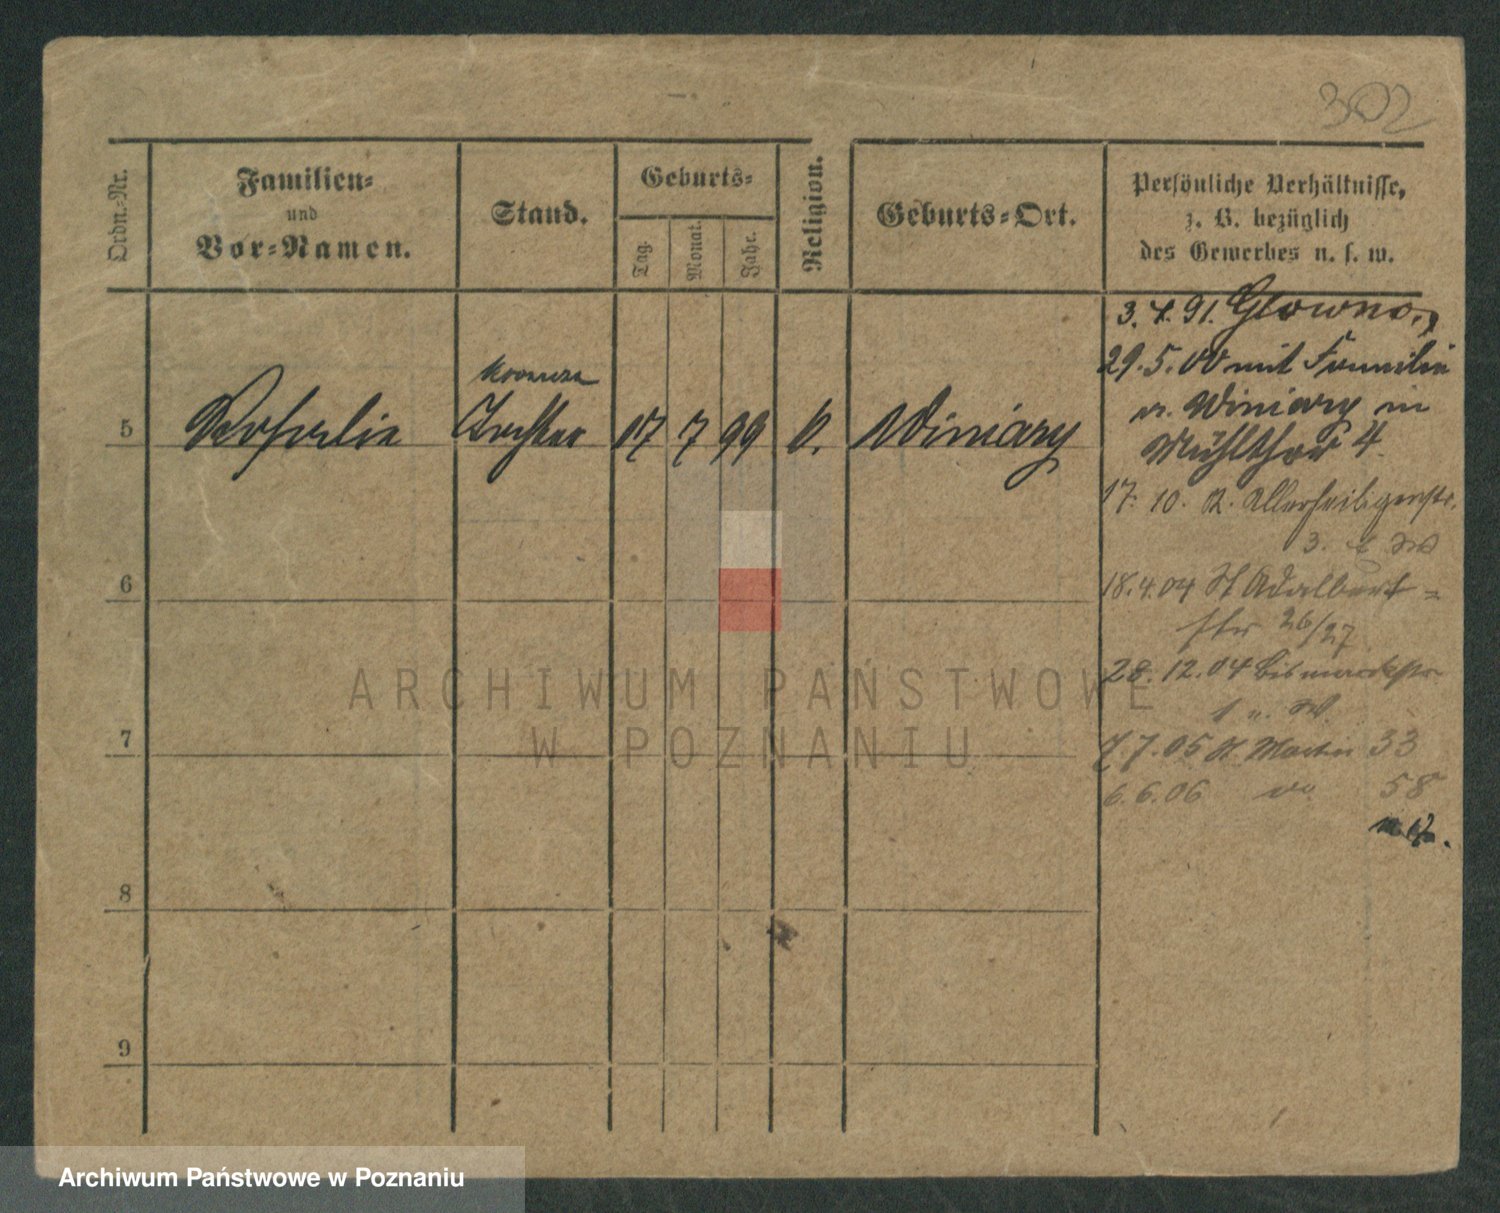 302
Ordn.-Nr.
Familien-
und
Vor-Namen.
Stand.
Geburts-
Tag.
Monat.
Jahr.
Religion.
Geburts-Ort.
Persönliche Verhältnisse,
z. B. bezüglich
des Gewerbes u. s. w.
3. 4. 91. Glowno,
29. 5. 00 mit Familie
v. Winiary in
Mühlthor 4.
5
Tochter
17
7
99
Winiary
17. 10. Allerheiligenstr.
3.
6
18. 4. 04 St Adalbert =
str 26/27
28. 12. 04 Bismarckstr
1
7
7. 7. 05 St. Martin 33
6. 6. 06 do 58
8
9
ARCHIWUM PAŃSTWOWE
W POZNANIU
Archiwum Państwowe w Poznaniu